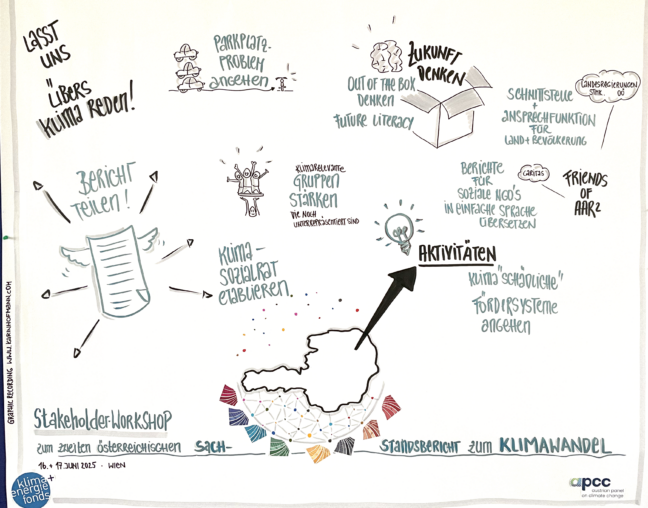 LASST
UNS
ÜBERS
KLIMA REDEN!
PARKPLATZ-
PROBLEM
ANGEHEN.
ZUKUNFT
DENKEN
OUT OF THE BOX
DENKEN
FUTURE LITERACY
SCHNITTSTELLE
+
ANSPRECHFUNKTION
FÜR
LAND + BEVÖLKERUNG
LANDESREGIERUNGEN
STMK. OÖ
BERICHT
TEILEN!
KLIMARELEVANTE
GRUPPEN
STÄRKEN
DIE NOCH
UNTERREPRÄSENTIERT SIND
BERICHTE
FÜR
SOZIALE NGO'S
IN EINFACHE SPRACHE
ÜBERSETZEN
CARITAS
FRIENDS
OF
AAR2
KLIMA-
SOZIALRAT
ETABLIEREN.
AKTIVITÄTEN
KLIMA "SCHÄDLICHE"
FÖRDERSYSTEME
ANGEHEN
STAKEHOLDER-WORKSHOP
ZUM ZWEITEN ÖSTERREICHISCHEN SACH-
STANDSBERICHT ZUM KLIMAWANDEL
16. + 17. JUNI 2025 · WIEN
GRAPHIC RECORDING WWW.KARINHOFMANN.COM
klima+
energie
fonds
apcc
austrian panel
on climate change